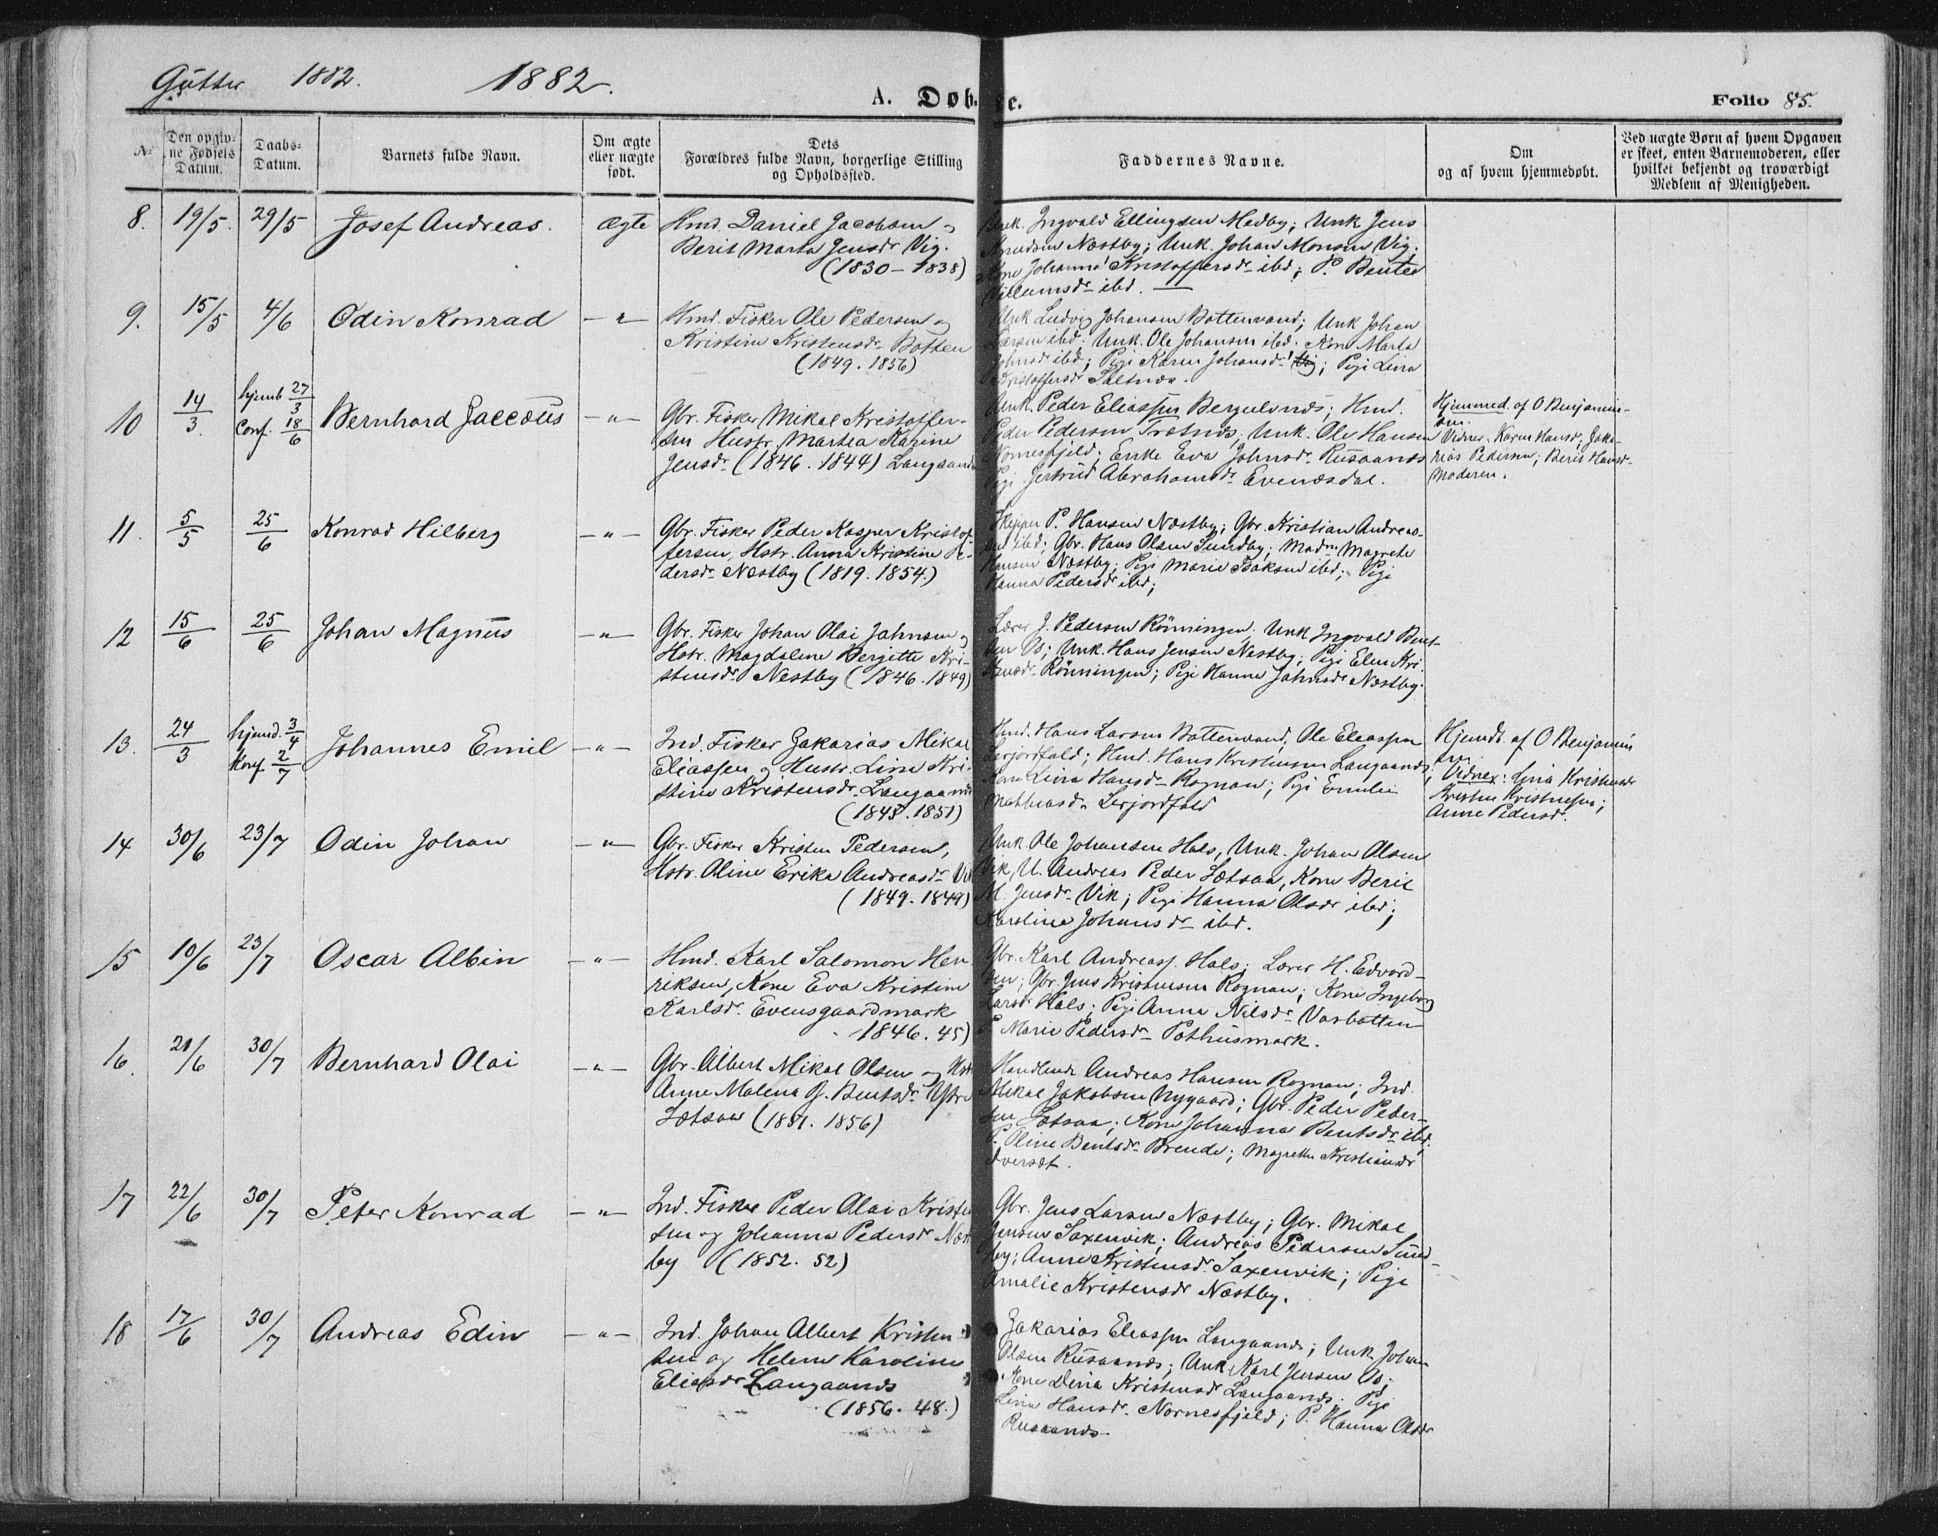 Gutter 1882. 1882.
A. Døb. e. Folio 85.
№
Den opgiv-
ne Fødsels
Datum.
Daabs-
Datum.
Barnets fulde Navn.
Om ægte
eller uægte
født.
Dets
Forældres fulde Navn, borgerlige Stilling
og Opholdssted.
Faddernes Navne.
Om
og af hvem hjemmedøbt.
Ved uægte Børn af hvem Opgaven
er skeet, enten Barnemoderen, eller
hvilket bekjendt og troværdigt
Medlem af Menigheden.
8. 19/5. 29/5 Josef Andreas. ægte
Hmd. Daniel Jacobsen
Berit Marta Jensdr Vig.
(1830-1838)
Unk. Ingvald Ellingsen Medby; Unk Jens
Knudsen Næstby; Unk. Johan Monsen Vig.
Kone Johanna Kristoffersdr ibd; P. Bente
Villumsdr ibd.
9. 15/5 4/6 Odin Konrad -"-
Hmd. Fisker Ole Pedersen og
Kristine Kristensdr Botten
(1849. 1856)
Unk Ludvig Johansen Bottenvand; Unk Johan
Larsen ibd; Unk. Ole Johansen ibd. Kone Marta
Johnsdr ibd; Pige Karen Johansdr Vig; Pige Lina
Kristoffersdr Saltnes.
10 14/3. hjemb 27/3
Conf. 18/6 Bernhard Jaccobus -"-
Gbr. Fisker Mikal Kristoffer-
sen Hustr. Martea Karine
Jensdr (1846. 1844) Langaand
Unk. Peder Eliassen Bergulvnes; Hmd.
Peder Pedersen Trætnes, Unk. Ole Hansen
Nornesfjeld; Enke Eva Johnsdr Rusaanes
Pige Jertrud Abrahamsdr Evenesdal.
Hjemmed. af O Benjamin-
sen.
Vidner. Karen Hansdr, Zaka-
rias Pedersen; Berit Hansdr
Moderen.
11. 5/5 25/6 Konrad Hilberg -"-
Gbr. Fisker Peder Kasper Kristof-
fersen, Hstr. Anna Kristine Pe-
dersdr Næstby (1819. 1854.)
Skipper P. Hansen Næstby; Gbr. Kristian Andreas-
sen ibd; Gbr. Hans Olsen Sundby; Madm Magrete
Hansen Næstby; Pige Marie Isaksen ibd; Pige
Hanna Pedersdr ibd;
12 15/6 25/6 Johan Magnus -"-
Gbr. Fisker Johan Olai Jahnsen og
Hstr. Magdalene Bergitte Kri-
stensdr. Nestby (1846. 1849)
Lærer J. Pedersen Rønningen; Unk Ingvald Bent-
sen Bø; Unk. Hans Jensen Næstby; Pige Elen Kri
stensdr Rønningen; Pige Hanna Jahnsdr Næstby.
13. 24/3 hjemd. 3/4
Konf. 2/7 Johannes Emil -"-
Ind. Fisker Zakarias Mikal
Eliassen og Hustr. Line Kri-
stine Kristensdr. Langaand
(1845. 1851)
Hmd. Hans Larsen Bottenvand, Ole Eleassen
Lerjordfald; Hmd. Hans Kristensen Langaanes
Kone Lina Hansdr Rognan; Pige Emilie
Mathiasdr Lerjordfald
Hjemdb. af O Benjamin
sen
Vidner: Lina Kristensdr
Kristen Kristensen;
Anne Pedersdr.
14 30/6 23/7 Odin Johan -"-
Gbr. Fisker Kristen Pedersen,
Hstr. Oline Erika Andreasdr Vik
(1849. 1849)
Unk Ole Johansen Hals, Unk. Johan Olsen
Vik, U. Andreas Peder Lætsaa, Kone Berit
M. Jensdr Vik; Pige Hanna Olsdr ibd;
Karoline Johansdr ibd.
15 10/6 23/7 Oscar Albin -"-
Hmd. Karl Salomon Hen
riksen, Kone Eva Kristine
Karlsdr. Evensgaardmark
1846. 45)
Gbr. Karl Andreass. Hals; Lærer H. Edvard-
sen; Gbr. Jens Kristensen Rognan; Kone Ingeborg
Larsdr Hals; Pige Anna Nilsdr Vasbotten
P. Marie Pedersdr Pothusmark.
16. 21/6 30/7 Bernhard Olai -"-
Gbr. Albert Mikal Olsen og Hstr
Anne Malena J. Bentsdr Ystre
Lætsaa (1851. 1856)
Handlende Andreas Hansen Rognan; Ind.
Mikal Jakobsen Nygaard; Gbr. Peder Peder-
sen Lætsaa; Kone Johanna Bentsdr ibd;
P. Oline Bentsdr Brende; Magrethe Kristiansdr
Tverset.
17 22/6 30/7 Peter Konrad -"-
Ind. Fisker Peder Olai Kristen
sen og Johanna Pedersdr Næst
by (1852. 52)
Gbr. Jens Larsen Næstby; Gbr. Mikal
Jensen Saxenvik; Andreas Pedersen Sund-
by; Anne Kristensdr Saxenvik; Pige
Amalie Kristensdr Næstby.
18 17/6 30/7 Andreas Edin -"-
Ind. Johan Albert Kristen
sen og Helene Karoline
Eliasdr Langaanes
(1856. 48.)
Zakarias Eleassen Langaanes; Unk. Johan
Olsen Rusaanes; Unk. Karl Jensen Bø;
Kone Dina Kristensdr Langaanes; Pige
Lina Hansdr. Nornesfjeld; P. Hanna Olsdr
Rusaanes